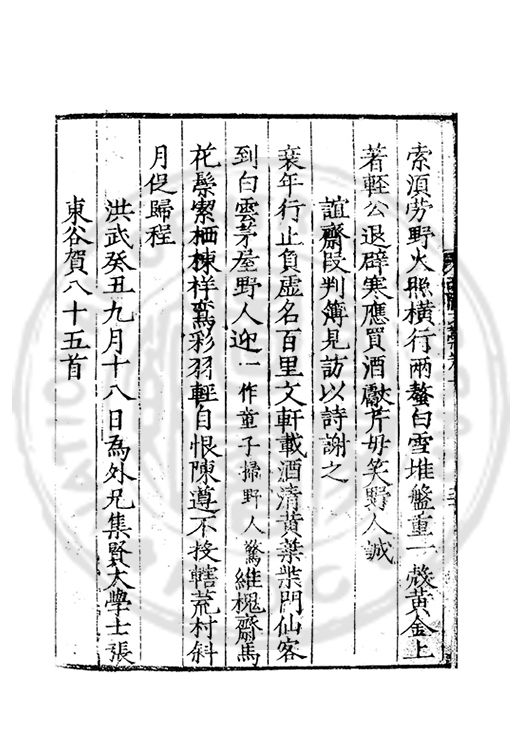 索湏勞野火照橫行兩螯白雪堆盤重一殼黃金上
著輕公退辟寒應買酒獻芹毋笑野人誠
誼齋段判簿見訪以詩謝之
衰年行止負虛名百里文軒載酒清黃葉柴門仙客
到白雲茅屋野人迎一作童子掃野人驚維槐齋馬
花鬃索栖棟祥鸞彩羽輕自恨陳遵不投轄荒村斜
月促歸程
洪武癸丑九月十八日為外兄集賢大學士張
東谷賀八十五首